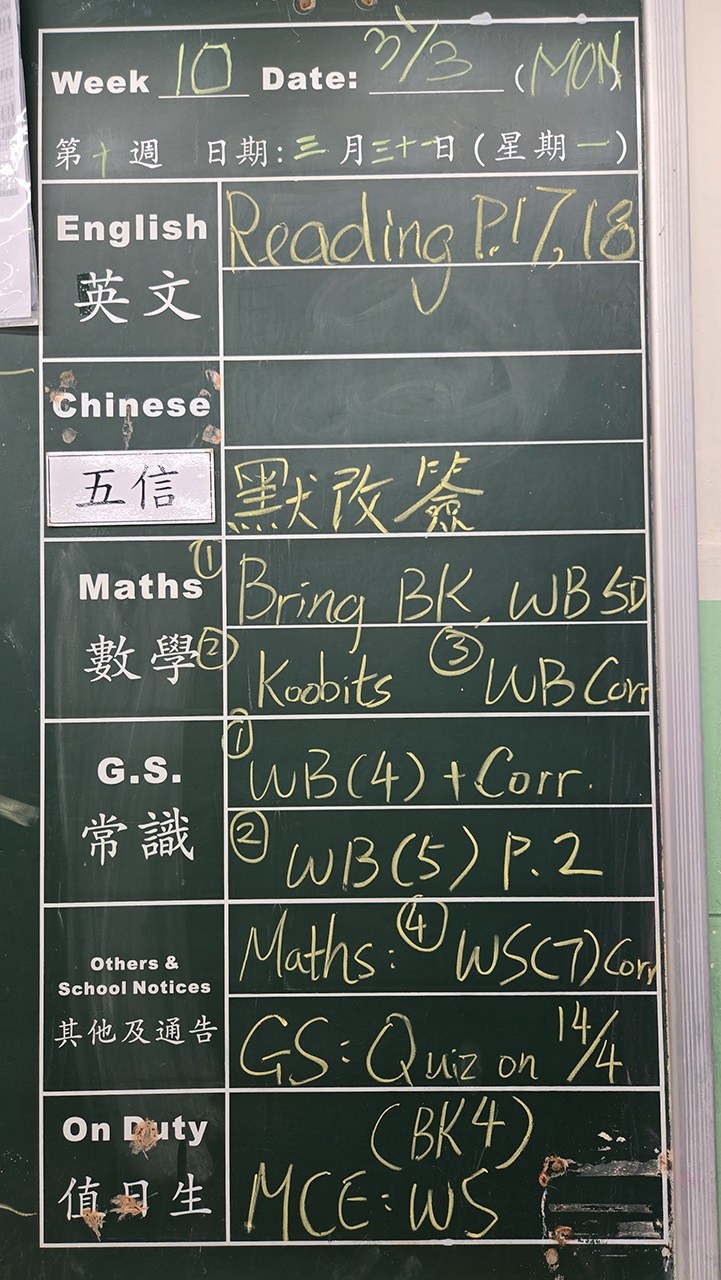 Week 10 Date: 31/3 (MON)
第十週 日期:三月三十一日(星期一)
English Reading P.17, 18
英文
Chinese
五信 默改簽
Maths ① Bring BK, WB 5D
數學 ② Koobits ③ WB Corr
G.S. ① WB(4) + Corr.
常識 ② WB(5) P.2
Others & School Notices Maths: ④ WS(7) Corr
其他及通告 GS: Quiz on 14/4
On Duty (BK4)
值日生 MCE: WS